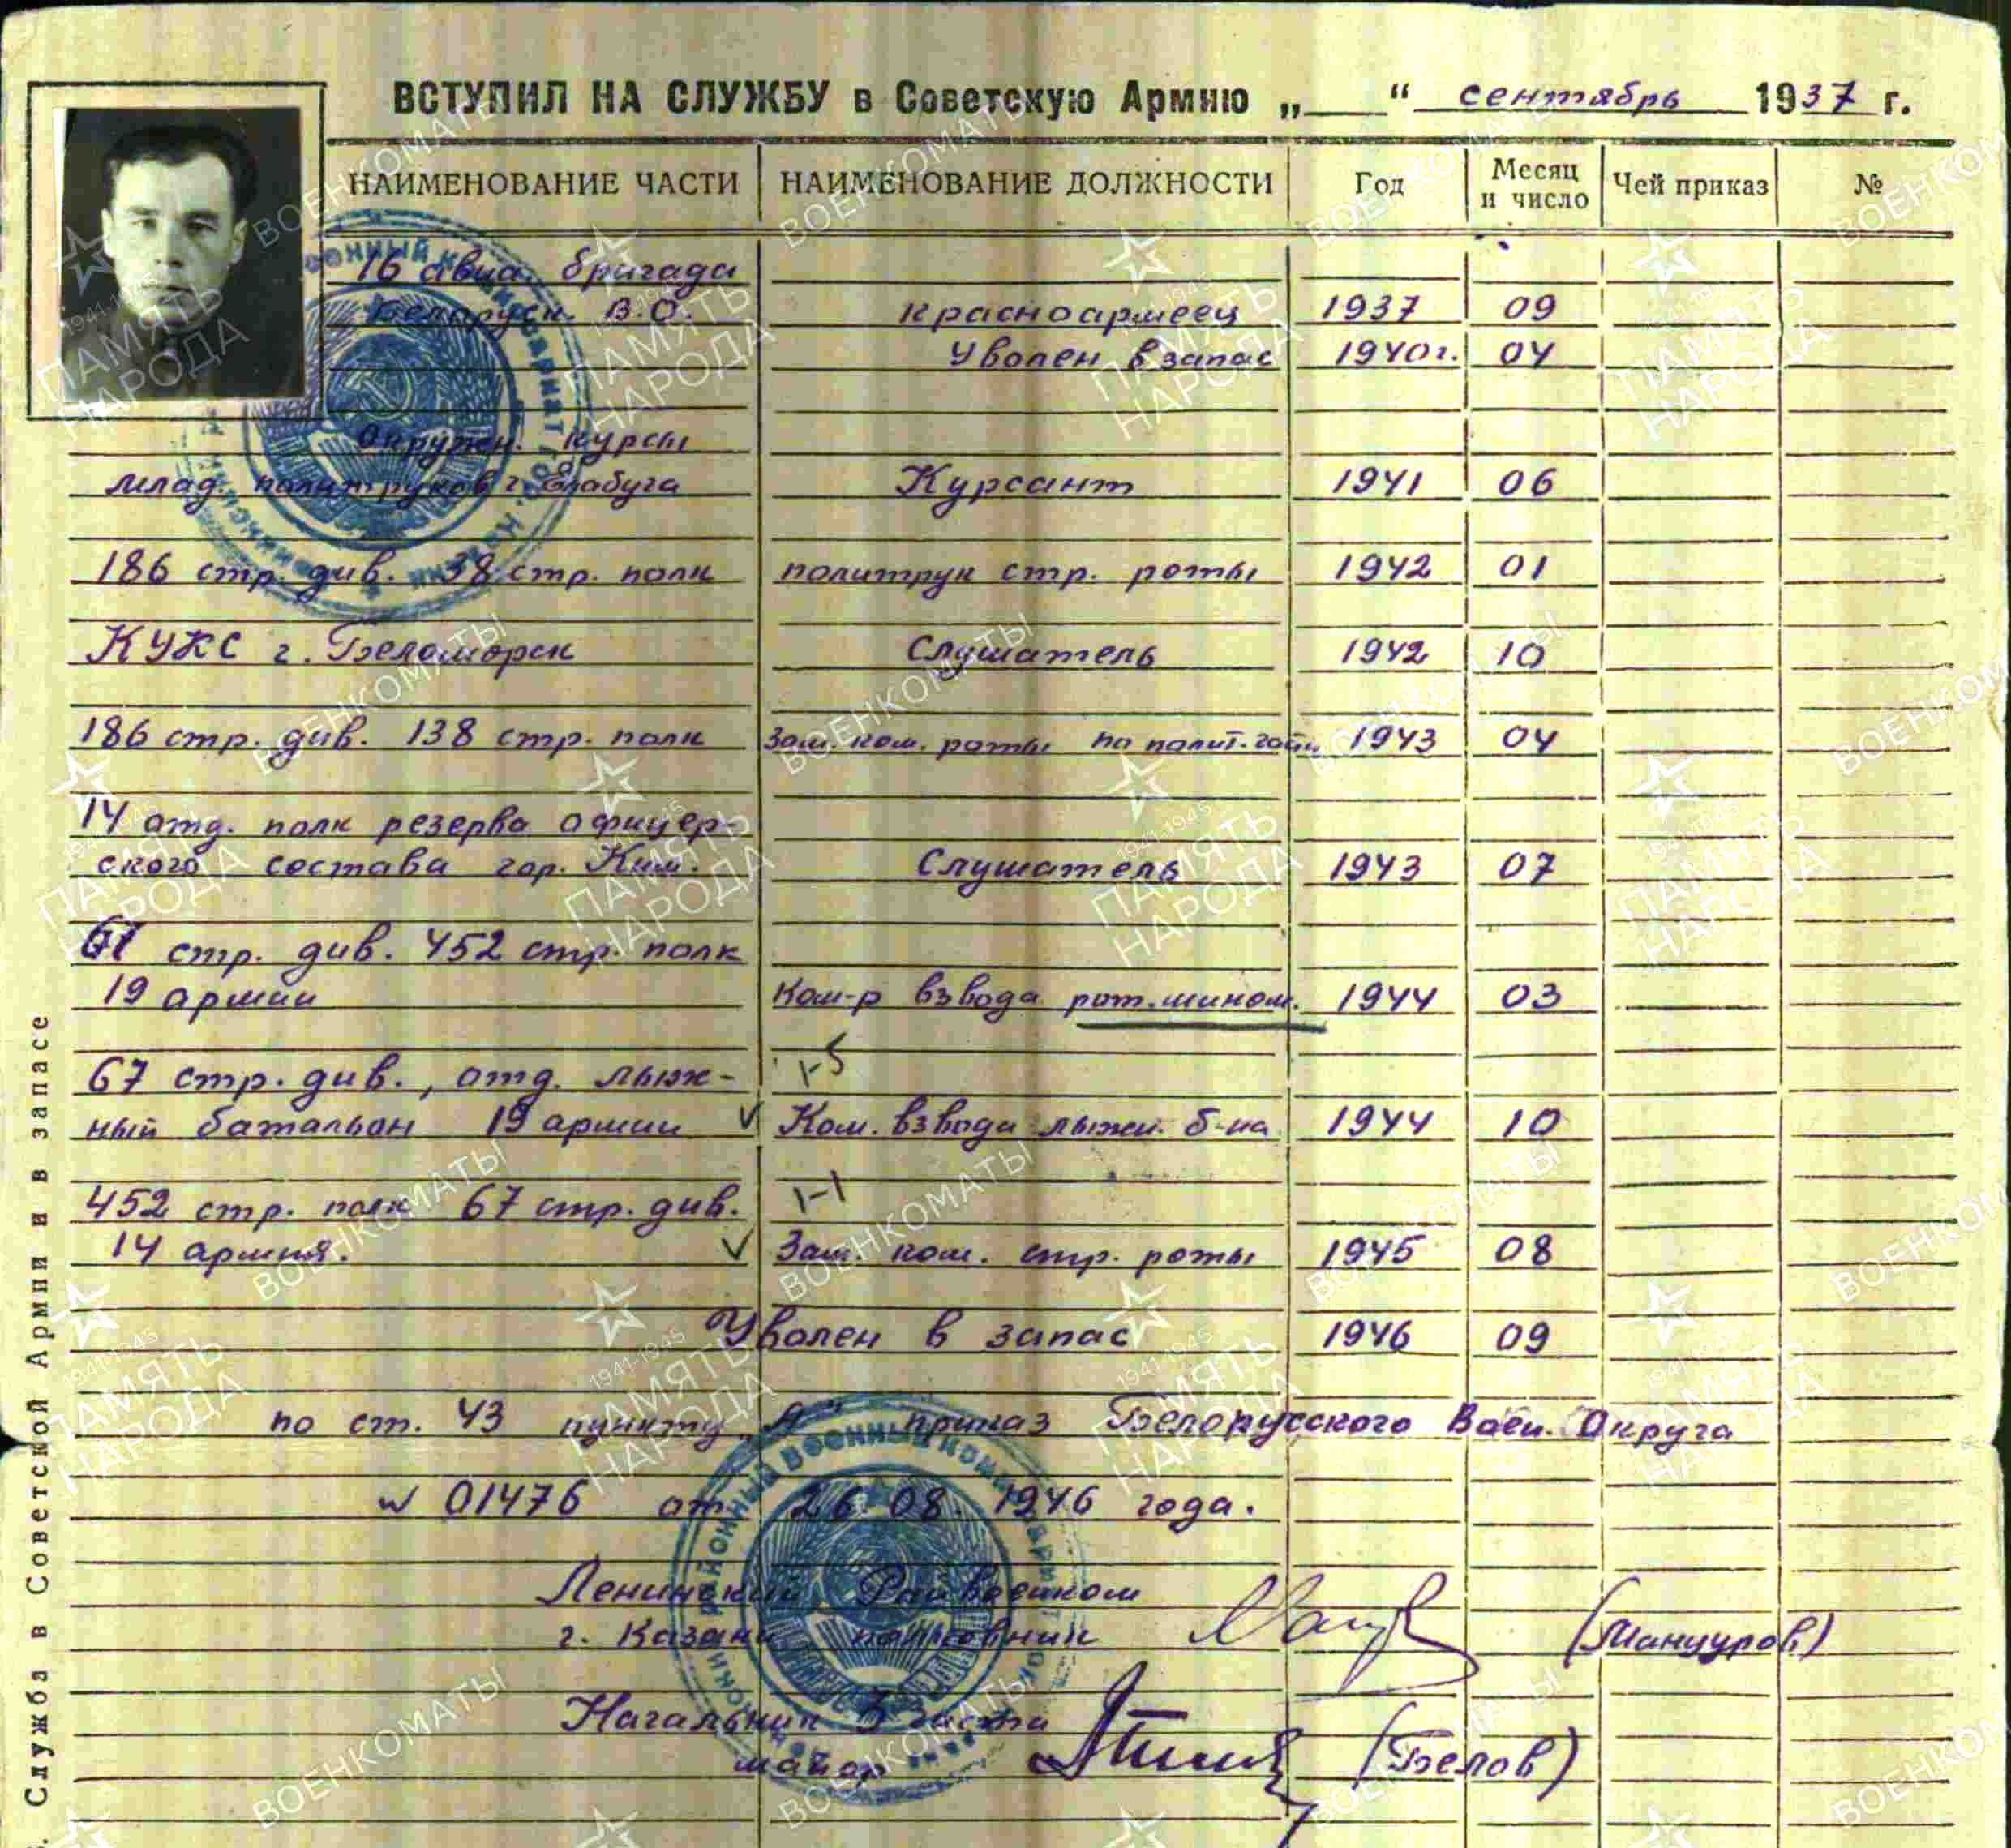 ВСТУПИЛ НА СЛУЖБУ в Советскую Армию „___“ сентябрь 1937 г.
НАИМЕНОВАНИЕ ЧАСТИ НАИМЕНОВАНИЕ ДОЛЖНОСТИ Год Месяц и число Чей приказ №
16 авиа. бригада
Белорусск. В.О. красноармеец 1937 09
Уволен в запас 1940г. 04
Окружн. курсы
млад. политруков г. Елабуга Курсант 1941 06
186 стр. див. 38 стр. полк политрук стр. роты 1942 01
КУКС г. Беломорск Слушатель 1942 10
186 стр. див. 138 стр. полк Зам. ком. роты по полит. части 1943 04
14 отд. полк резерва офицер-
ского состава гор. Ким. Слушатель 1943 07
стр. див. 452 стр. полк
19 армии Ком-р взвода рот. мином. 1944 03
1-5
67 стр. див., отд. лыж-
ный батальон 19 армии ✓ Ком. взвода лыжн. б-на 1944 10
1-1
452 стр. полк 67 стр. див.
14 армия. ✓ Зам. ком. стр. роты 1945 08
Уволен в запас 1946 09
по ст. 43 пункту „А“ приказ Белорусского Воен. Округа
№ 01476 от 26.08.1946 года.
Ленинский Райвоенком
г. Казани полковник (Мансуров)
Начальник 3 части
майор (Белов)
Служба в Советской Армии и в запасе
ВОЕНКОМАТЫ
1941-1945
ПАМЯТЬ
НАРОДА